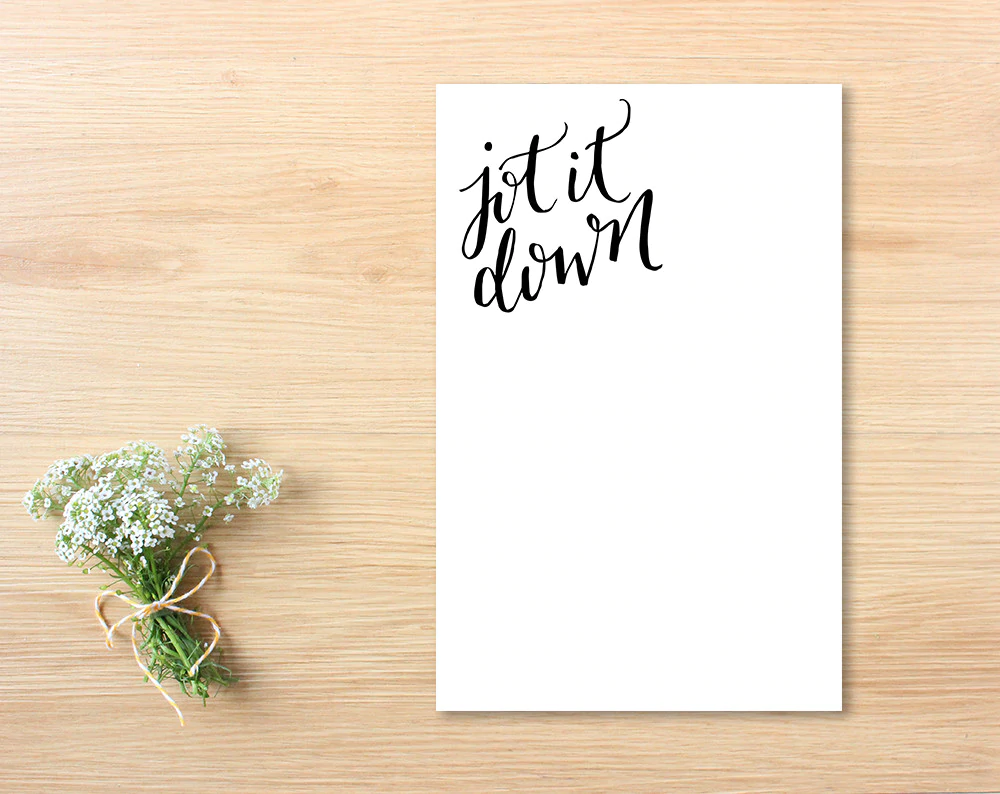 jot it
down